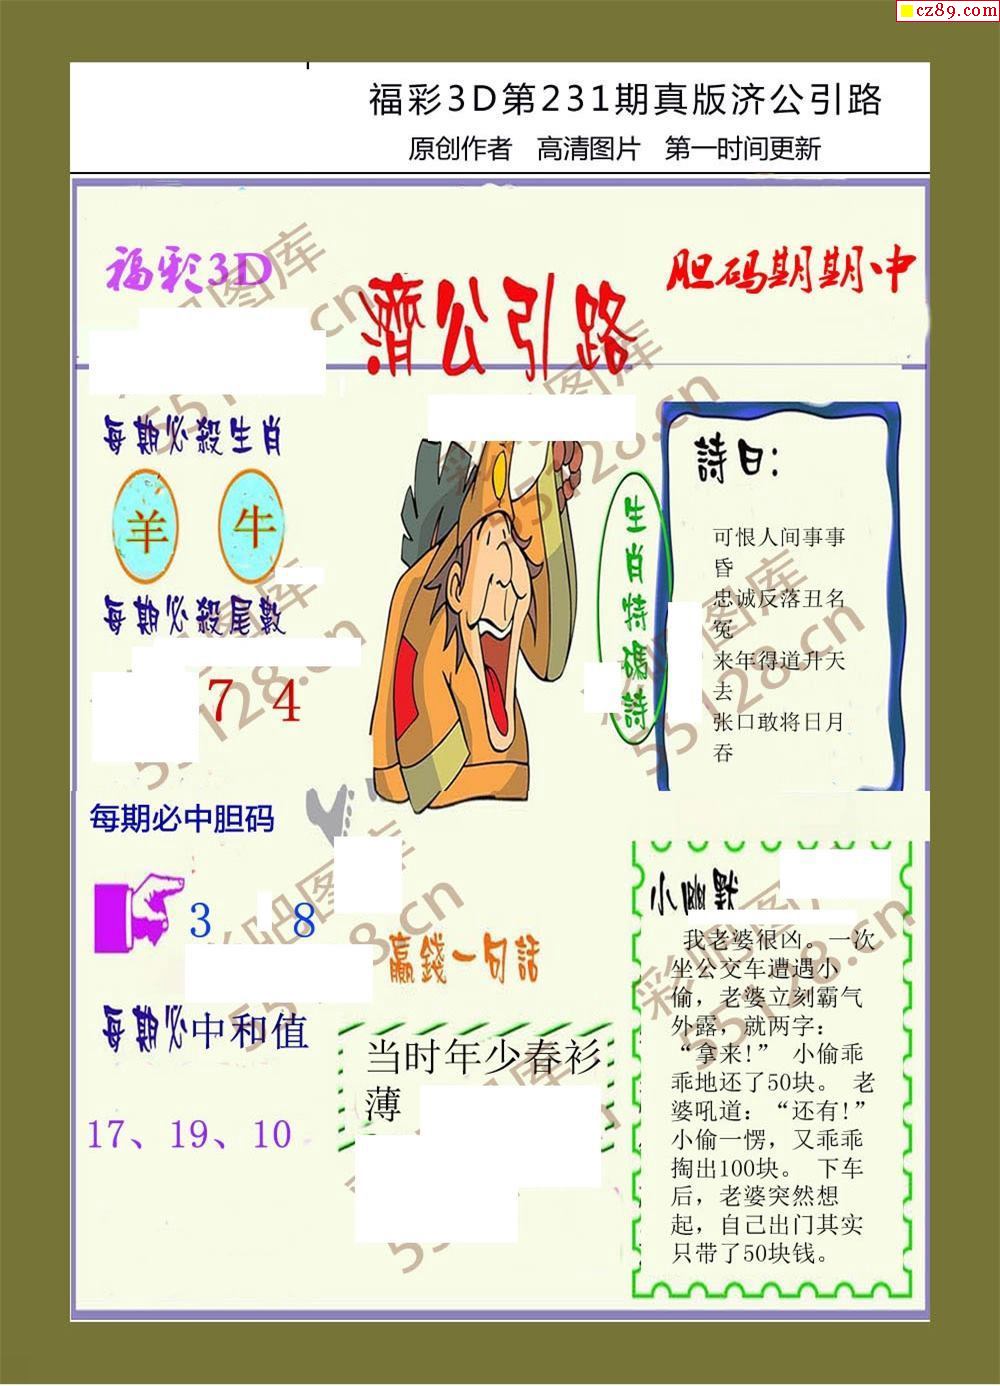 cz89.com
福彩3D第231期真版济公引路
原创作者 高清图片 第一时间更新
福彩3D
濟公引路
胆码期期中
每期必殺生肖
羊 牛
每期必殺尾數
7 4
每期必中胆码
3 8
每期必中和值
17、19、10
生肖特碼詩
詩曰：
可恨人间事事
昏
忠诚反落丑名
冤
来年得道升天
去
张口敢将日月
吞
赢錢一句話
当时年少春衫
薄
小幽默
我老婆很凶。一次
坐公交车遭遇小
偷，老婆立刻霸气
外露，就两字：
“拿来!” 小偷乖
乖地还了50块。 老
婆吼道：“还有!”
小偷一愣，又乖乖
掏出100块。 下车
后，老婆突然想
起，自己出门其实
只带了50块钱。
彩吧图库
55128.cn